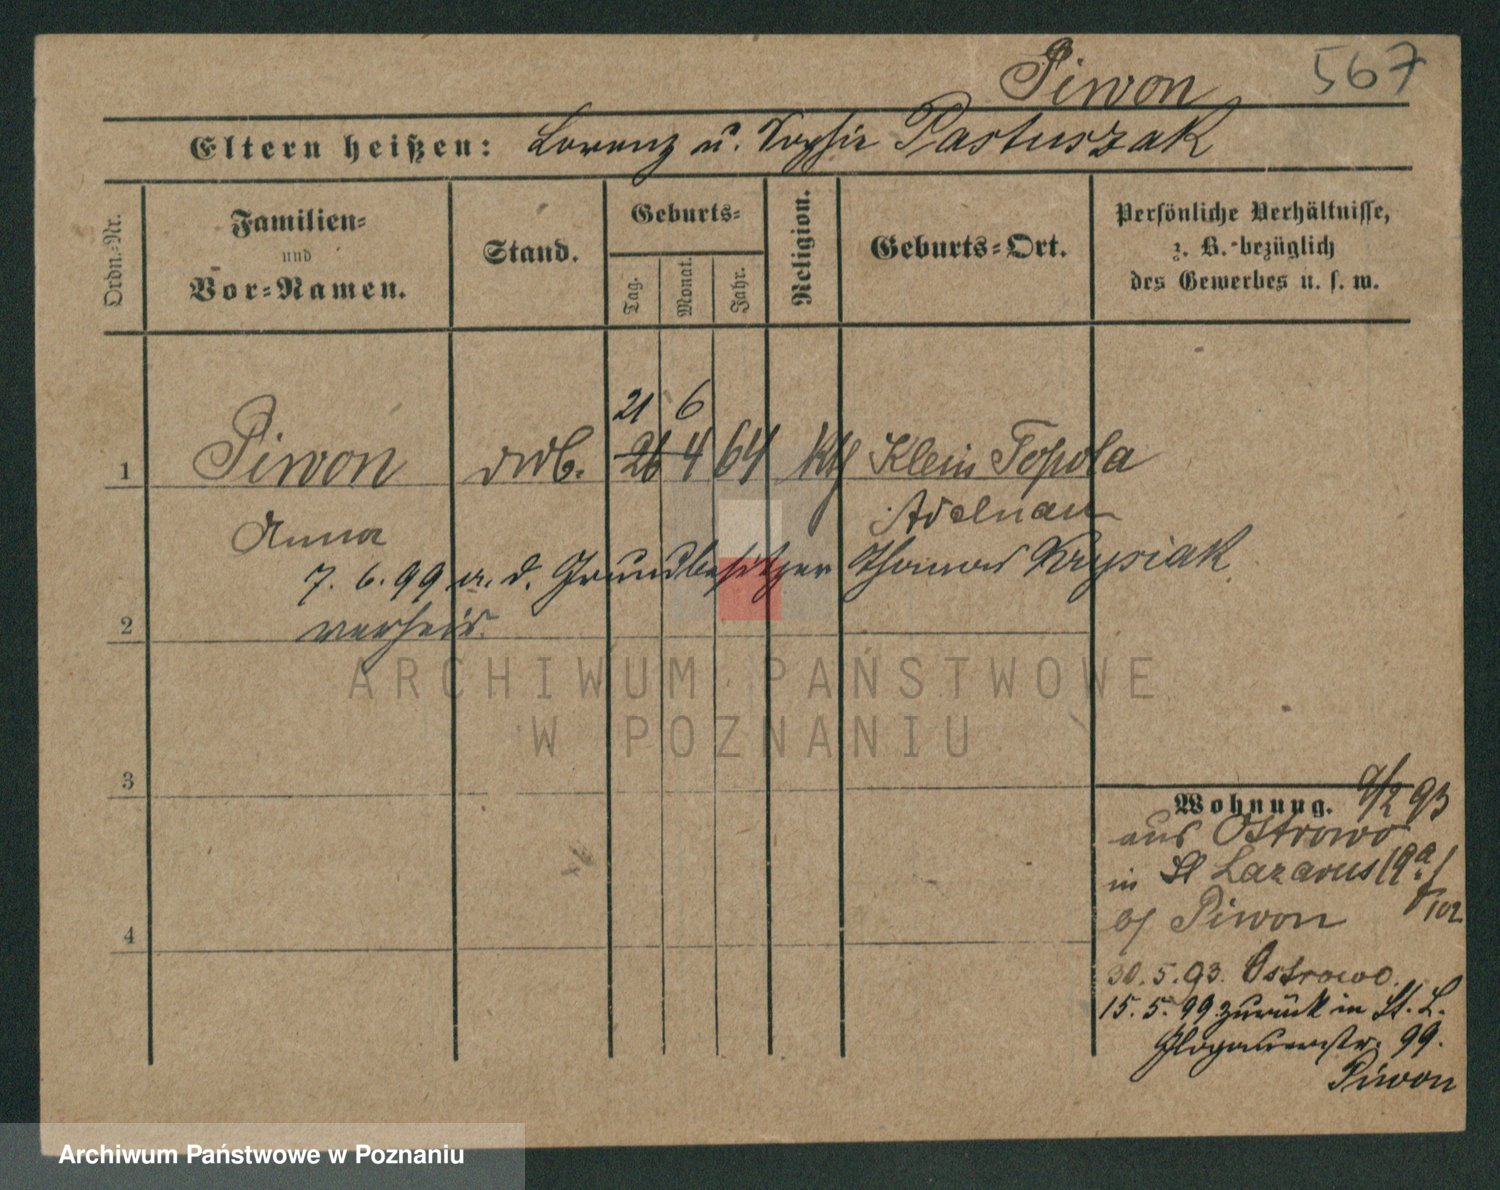 Piwon 567
Eltern heißen: Lorenz u. Sophie Pastuszak
Ordn.-Nr.
Familien-
und
Vor-Namen.
Stand.
Geburts-
Tag.
Monat.
Jahr.
Religion.
Geburts-Ort.
Persönliche Verhältnisse,
z. B. bezüglich
des Gewerbes u. s. w.
21 6
1 Piwon 26 4 64 kth Klein Topola
Anna Adelnau
7. 6. 99 a. d. Grundbesitzer Thomas Krysiak
2 verheir.
ARCHIWUM PAŃSTWOWE
W POZNANIU
3
Wohnung. 9/2 93
aus Ostrowo
in St Lazarus 19a
b/ Piwon
30. 5. 93. Ostrowo.
4
15. 5. 99 zurück in St. L.
Glogauerstr. 99.
Piwon
Archiwum Państwowe w Poznaniu